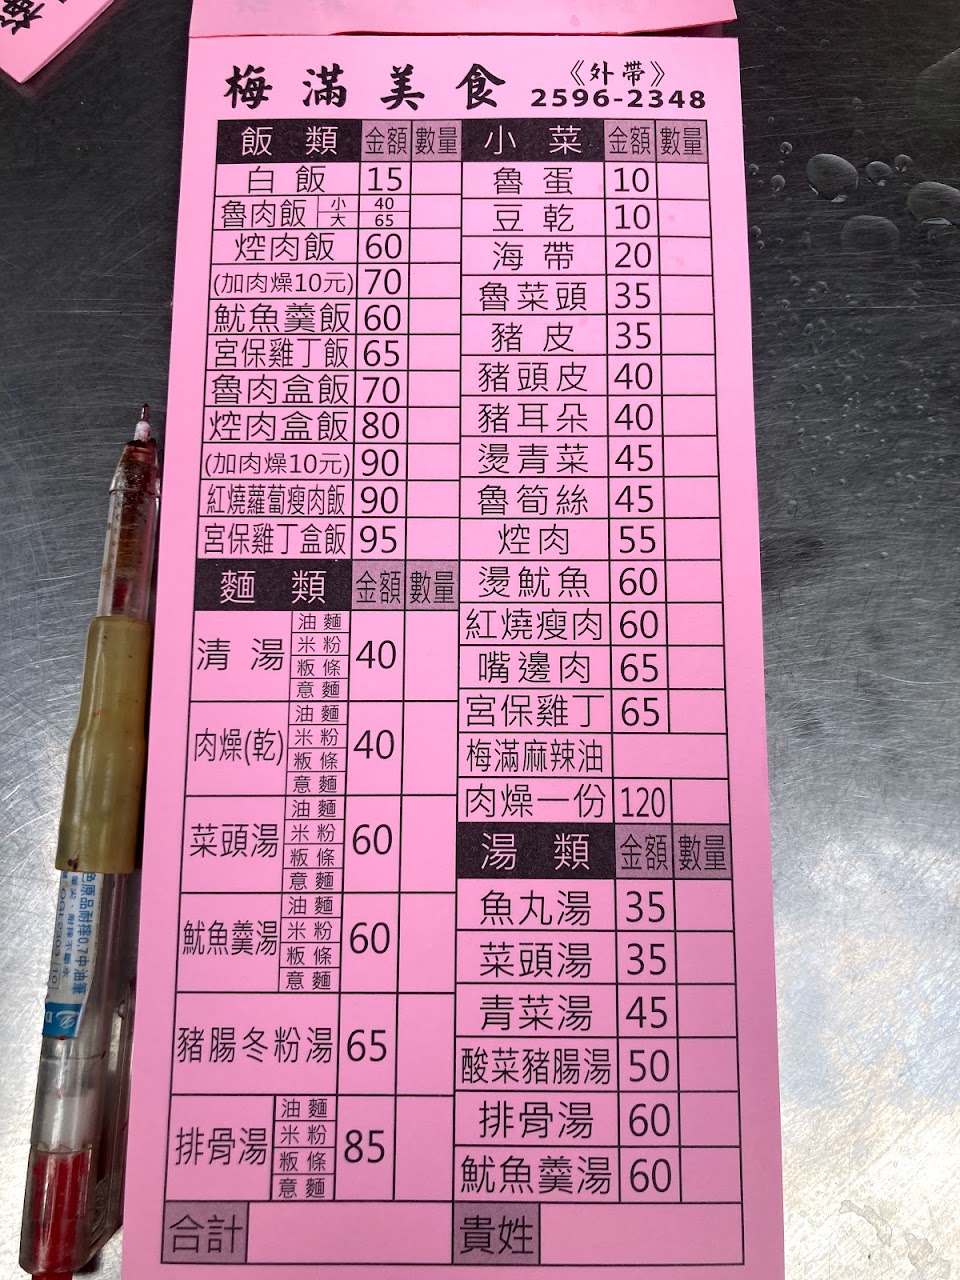 梅滿美食
《外帶》
2596-2348
飯類 金額 數量
白飯 15
魯肉飯 小 40
大 65
焢肉飯 60
(加肉燥10元) 70
魷魚羹飯 60
宮保雞丁飯 65
魯肉盒飯 70
焢肉盒飯 80
(加肉燥10元) 90
紅燒蘿蔔瘦肉飯 90
宮保雞丁盒飯 95
麵類 金額 數量
清湯 油麵 米粉 粄條 意麵 40
肉燥(乾) 油麵 米粉 粄條 意麵 40
菜頭湯 油麵 米粉 粄條 意麵 60
魷魚羹湯 油麵 米粉 粄條 意麵 60
豬腸冬粉湯 65
排骨湯 油麵 米粉 粄條 意麵 85
合計
小菜 金額 數量
魯蛋 10
豆乾 10
海帶 20
魯菜頭 35
豬皮 35
豬頭皮 40
豬耳朵 40
燙青菜 45
魯筍絲 45
焢肉 55
燙魷魚 60
紅燒瘦肉 60
嘴邊肉 65
宮保雞丁 65
梅滿麻辣油
肉燥一份 120
湯類 金額 數量
魚丸湯 35
菜頭湯 35
青菜湯 45
酸菜豬腸湯 50
排骨湯 60
魷魚羹湯 60
貴姓
色原品耐摔0.7中油筆